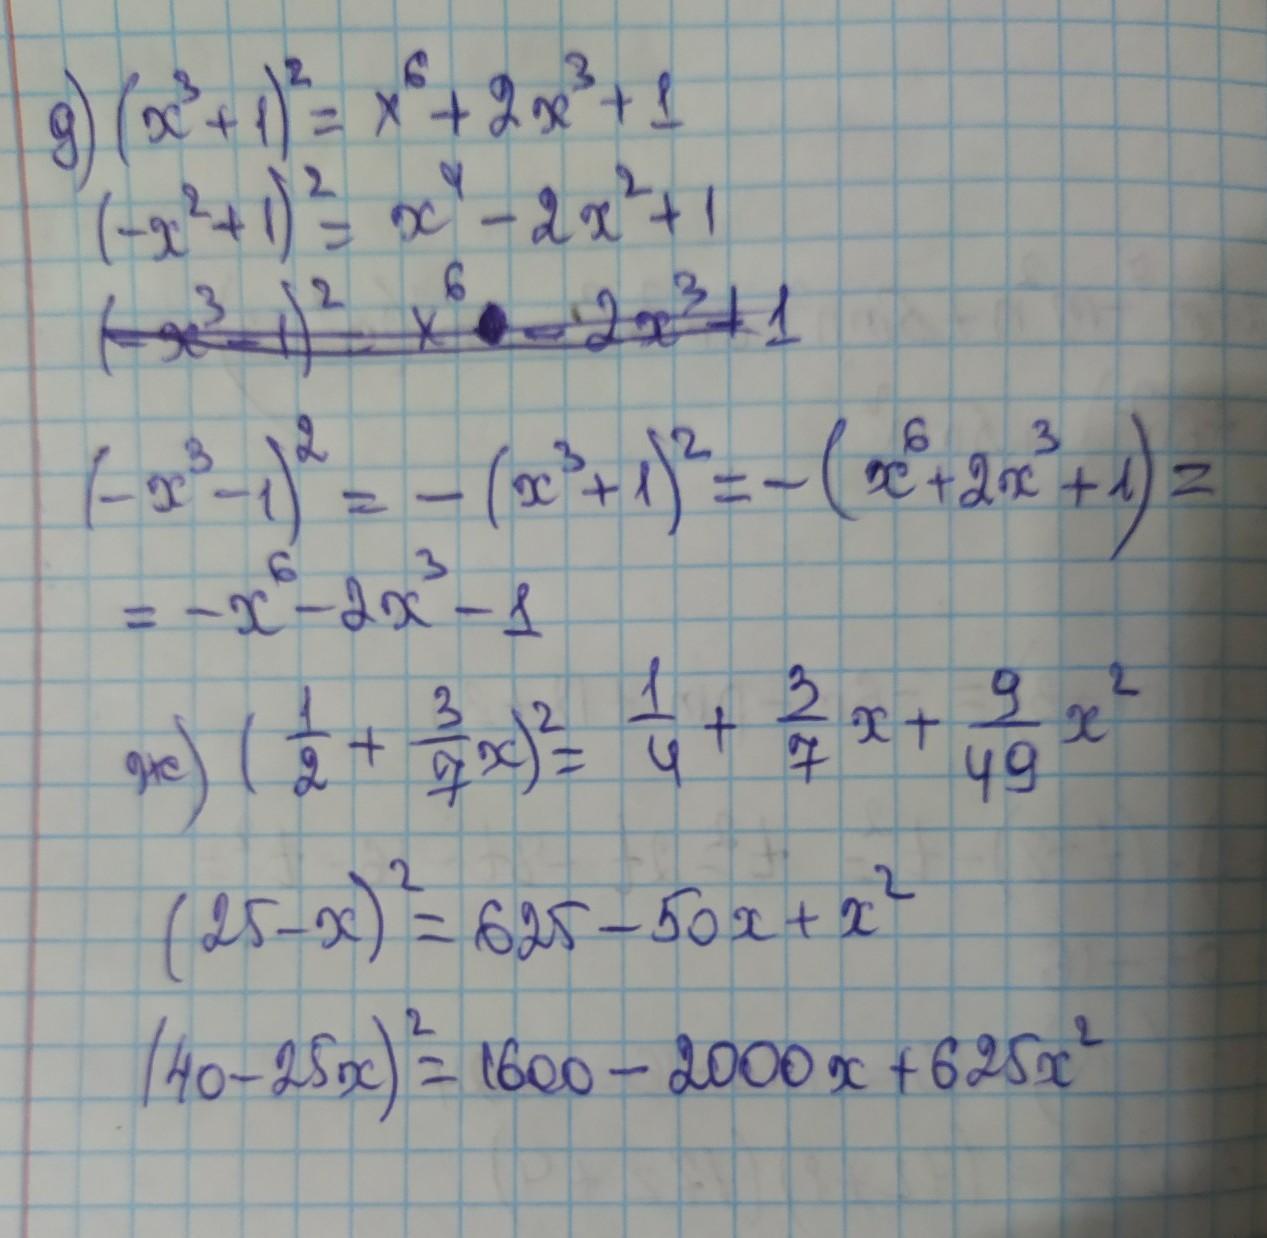 д) (x³+1)² = x⁶ + 2x³ + 1
(-x²+1)² = x⁴ - 2x² + 1
(-x³-1)² = x⁶ - 2x³ + 1
(-x³-1)² = -(x³+1)² = -(x⁶+2x³+1) =
= -x⁶ - 2x³ - 1
ж) (1/2 + 3/7 x)² = 1/4 + 3/7 x + 9/49 x²
(25-x)² = 625 - 50x + x²
(40-25x)² = 1600 - 2000x + 625x²